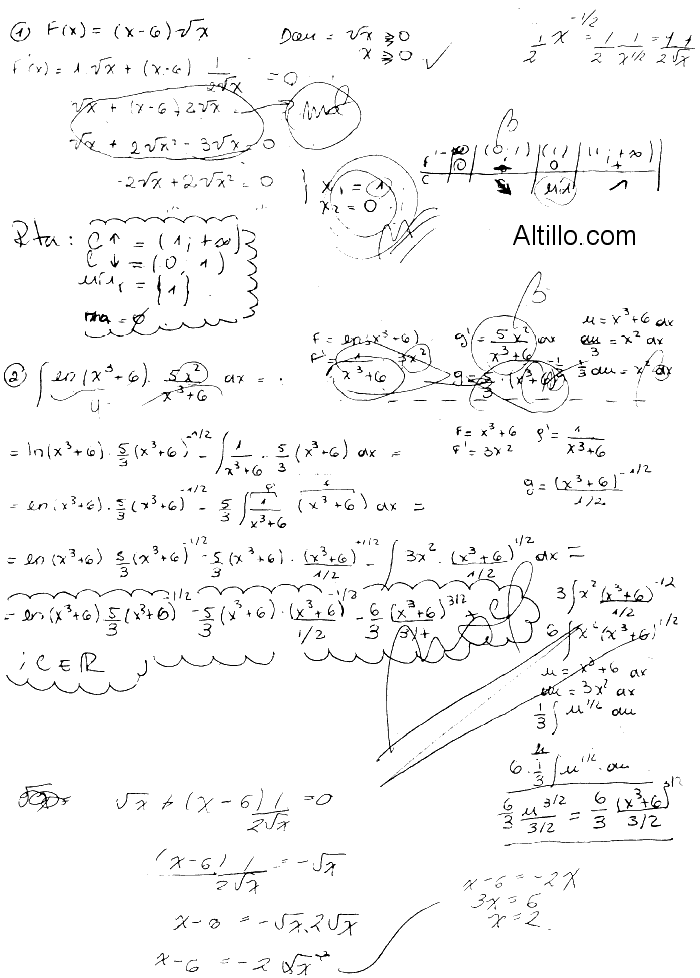 ① F(x) = (x-6)√x
Dom = √x ≥ 0
x ≥ 0 ✓
1/2 x^(-1/2) = 1/2 1/x^(1/2) = 1/(2√x)
F'(x) = 1·√x + (x-6) 1/(2√x) = 0
√x + (x-6) 2√x
√x + 2√x² - 3√x = 0
-2√x + 2√x² = 0
x₁ = 1
x₂ = 0
(0; 1) | (1) | (1; +∞)
0 | 0 | +
min
Rta: C↑ = (1; +∞)
C↓ = (0; 1)
min = {1}
Altillo.com
② ∫ ln(x³+6) · 5x²/(x³+6) dx =
F = ln(x³+6)
F' = 1/(x³+6) 3x²
g' = 5x²/(x³+6) dx
u = x³+6 dx
du/3 = x² dx
1/3 du = x² dx
= ln(x³+6) · 5/3 (x³+6)^(-1/2) - ∫ 1/(x³+6) · 5/3 (x³+6) dx =
F = x³+6 g' = 1/(x³+6)
F' = 3x²
g = (x³+6)^(-1/2)/(1/2)
= ln(x³+6) · 5/3 (x³+6)^(-1/2) - 5/3 ∫ 1/(x³+6) (x³+6) dx =
= ln(x³+6) 5/3 (x³+6)^(-1/2) - 5/3 (x³+6) · (x³+6)^(+1/2)/(1/2) - ∫ 3x² · (x³+6)^(1/2)/(1/2) dx =
= ln(x³+6) 5/3 (x³+6)^(-1/2) - 5/3 (x³+6) · (x³+6)^(-1/2)/(1/2) - 6/3 (x³+6)^(3/2)
i C ∈ R
3 ∫ x² (x³+6)^(-1/2)/(1/2)
6 ∫ x² (x³+6)^(1/2)
u = x³+6 dx
du = 3x² dx
1/3 ∫ u^(1/2) du
6 · 1/3 ∫ u^(1/2) · du
6/3 u^(3/2)/(3/2) = 6/3 (x³+6)^(3/2)/(3/2)
√x + (x-6) 1/(2√x) = 0
(x-6) 1/(2√x) = -√x
= -√x · 2√x
x-6 = -2 √x²
x-6 = -2x
3x = 6
x = 2